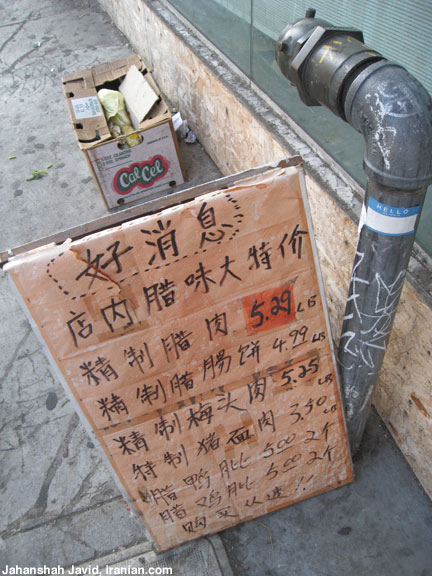 CalCel
HELLO
好消息
店内腊味大特价
精制腊肉 5.29 LB
精制腊腸饼 4.99 LB
精制梅头肉 5.25 LB
特制猪面肉 3.50 LB
腊鸭肶 5.00 2个
腊鸡肶 5.00 2个
购买从速!!
Jahanshah Javid, iranian.com